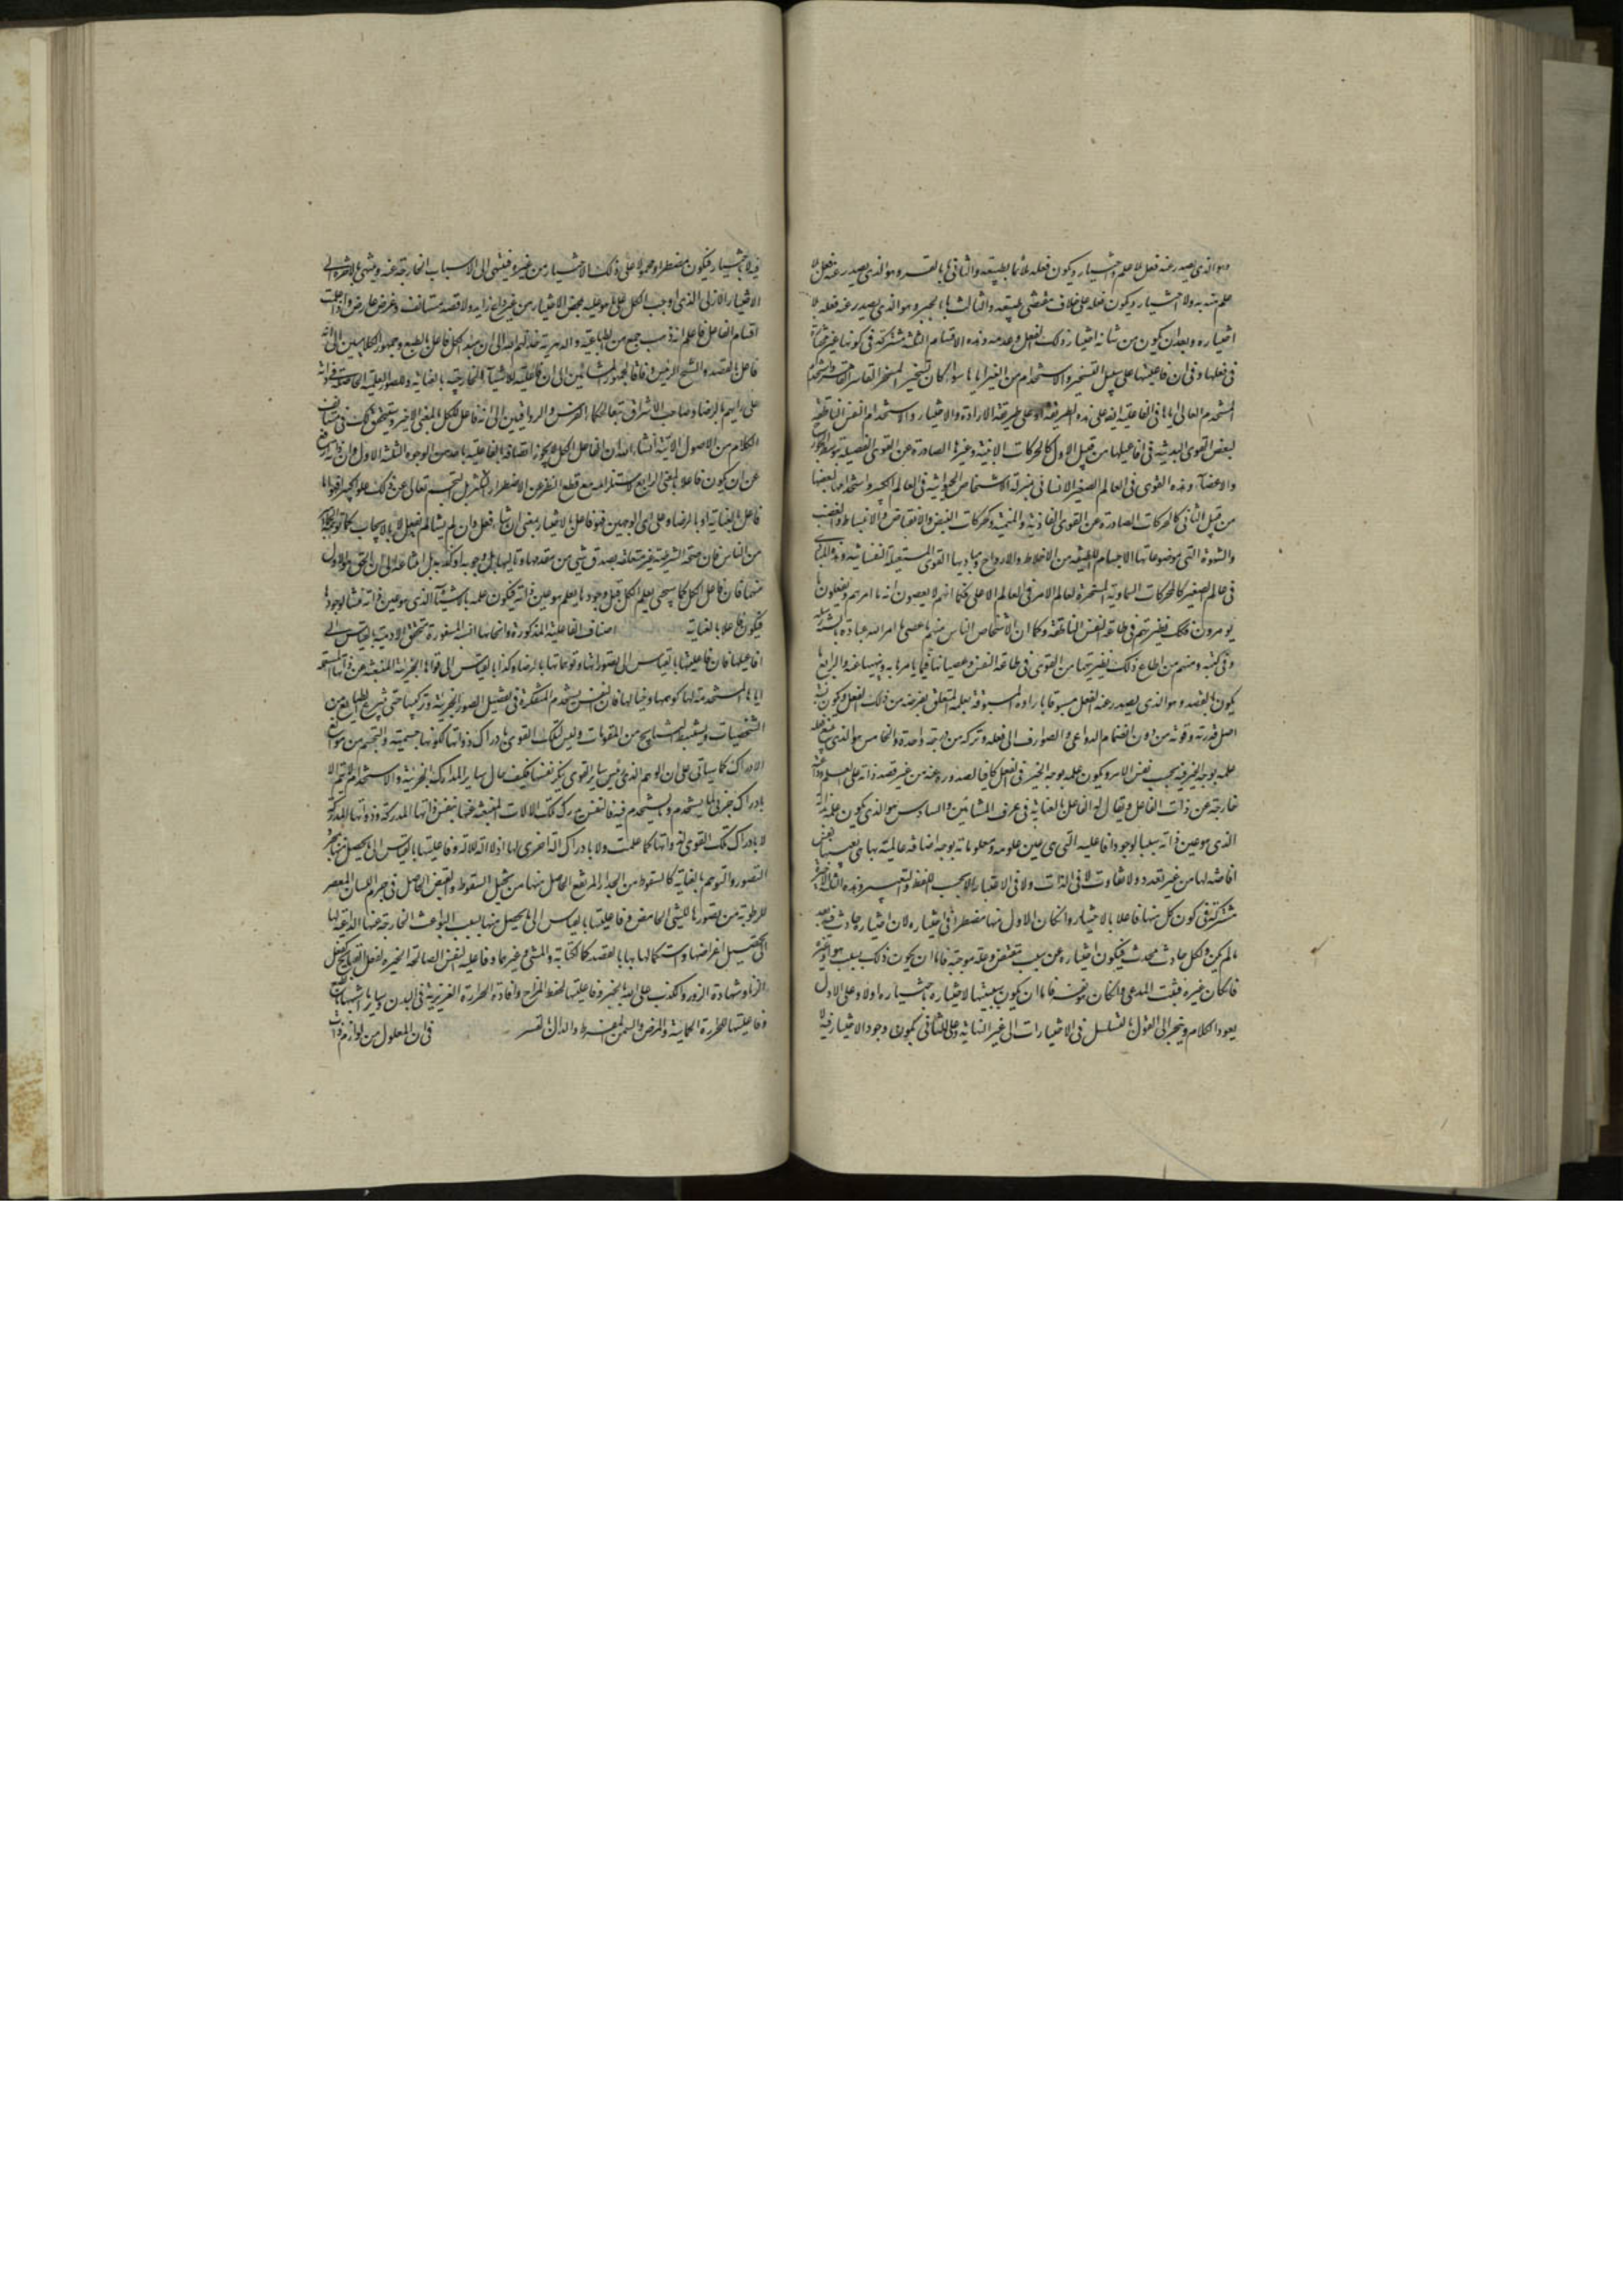 وهو الذي يصدر عنه فعل بلا علم واختيار ويكون فعله ملائما لطبيعته والثاني ما بالقسر وهو الذي يصدر عنه فعل بلا
علم منه به ولا اختيار ويكون فعله على خلاف مقتضى طبيعته والثالث ما بالجبر وهو الذي يصدر عنه فعله بلا
اختياره وبعد ان يكون من شانه اختيار ذلك الفعل وعدمه وهذه الاقسام الثلثة مشتركة في كونها غير مختارة
في فعلها وفي ان فاعليتها على سبيل التسخير والاستخدام من الغير اياها سواء كان تسخير المسخر القاسر
المستخدم العالي اياها في الفاعلية انه على هذه الطريقة او على طريقة الارادة والاختيار واستخدام النفس الناطقة
لبعض القوى البدنية في افاعيلها من قبيل الاول كالحركات الاينية وغيرها الصادرة عن القوى العضلية بتوسط الاوتار
والاعضاء وهذه القوى في العالم الصغير الانساني بمنزلة الاشخاص الحيوانية في العالم الكبير واستخدامها لبعضها
من قبيل الثاني كالحركات الصادرة عن القوى الغاذية والمنمية وكحركات النبض والانقباض والانبساط والغضب
والشهوة التي موضوعاتها الاجسام اللطيفة من الاخلاط والارواح ومباديها القوى المستعملة النفسانية وهذه المبادي
في عالم الصغير كالمحركات السماوية المسخرة لعالم الامر في العالم الاعلى فكما انهم لا يعصون الله ما امرهم ويفعلون ما
يؤمرون فكذلك نظيرتهم في طاعة النفس الناطقة وكما ان الاشخاص الناس منهم ما عصى امر الله عباده بالشر
وفي كتبه ومنهم من اطاع ذلك نظيرتها من القوى في طاعة النفس وعصيانها فيما يامرها به وينهيها عنه والرابع ما
يكون بالقصد وهو الذي يصدر عنه الفعل مسبوقا بارادة المسبوقة بعلمه المتعلق بغرضه من ذلك الفعل ويكون نسبة
اصل قدرته وقوته من دون انضمام الدواعي والصوارف الى فعله وتركه من درجة واحدة والخامس هو الذي يتبع فعله
علمه بوجه الخير فيه بحسب نفس الامر ويكون علمه بوجه الخير في الفعل كافيا لصدوره عنه من غير قصد زائد على العلم وداعية
خارجة عن ذات الفاعل ويقال له الفاعل بالعناية في عرف المشائين والسادس هو الذي يكون علمه بذاته
الذي هو عين ذاته سببا لوجود افاعيله التي هي عين علومه ومعلوماته بوجه اضافة عالميته بها هي بعينها نفس
افاضته لها من غير تعدد ولا تفاوت لا في الذات ولا في الاعتبار الا بحسب اللفظ والتعبير وهذه الثلثة الاخيرة
مشتركة في كون كل منها فاعلا بالاختيار وان كان الاول منها مضطرا في اختياره لان اختياره حادث فيه بعد
ما لم يكن ولكل حادث محدث فيكون اختياره عن سبب مقتض وعلة موجبة فاما ان يكون ذلك السبب هو او غيره
فان كان غيره فثبت المدعى وان كان هو نفسه فاما ان يكون سببيتها لاختياره باختياره او لا وعلى الاول
يعود الكلام وينجر الى القول بالتسلسل في الاختيارات الى غير النهاية وعلى الثاني يكون وجود الاختيار فيه لا
فيه لا باختياره فيكون مضطرا ومحمولا على ذلك الاختيار من غيره فينتهي الى الاسباب الخارجة عنه وينتهي بالاخرة الى
الاختيار الازلي الذي اوجب الكل على ما هو عليه بمحض الاختيار من غير داع زائد ولا قصد مستانف وغرض عارض واذا علمت
اقسام الفاعل فاعلم انه ذهب جمع من الطباعية والدهرية خذلهم الله الى ان مبدأ الكل فاعل بالطبع وجمهور الكلاميين الى انه
فاعل بالقصد والشيخ الرئيس وفاقا لجمهور المشائين الى ان فاعليته للاشياء الخارجية بالعناية وللصور العلمية الحاصلة في ذاته
على رايهم بالرضا وصاحب الاشراق تبعا لحكماء الفرس والرواقيين الى انه فاعل للكل بالمعنى الاخير وسيتحقق لك في مستانف
الكلام من الاصول الآتية انشاء الله ان فاعل الكل لا يجوز اتصافه بالفاعلية باحد من الوجوه الثلثة الاول وان ذاته ارفع
عن ان يكون فاعلا بالمعنى الرابع لاستلزامه مع قطع النظر عن الاضطرار التكثر بل التجسم تعالى عن ذلك علوا كبيرا فهو اما
فاعل بالعناية او بالرضا وعلى اي الوجهين فهو فاعل بالاختيار بمعنى ان شاء فعل وان لم يشأ لم يفعل لا بالايجاب كما توهمه الجماهير
من الناس فان صحة الشرطية غير متعلقة بصدق شيء من مقدمها وتاليها بل وجوبه او كذبه بل امتناعه الا ان الحق هو الاول
منهما فان فاعل الكل كما سيجيء يعلم الكل قبل وجودها بعلم هو عين ذاته فيكون علمه بالاشياء الذي هو عين ذاته منشأ لوجودها
فيكون فاعلا بالعناية اصناف الفاعلية المذكورة وانحائها الستة المسفورة تتحقق في النفس الآدمية بالقياس الى
افاعيلها فان فاعليتها بالقياس الى تصوراتها وتوهماتها بالرضا وكذا بالقياس الى قواها الجزئية المنبعثة عن ذاتها المستخدمة
اياها المستخدمة لها كوهمها وخيالها فان النفس يستخدم المتفكرة في تفصيل الصور الجزئية وتركيبها حتى ينتزع الطبايع من
الشخصيات ويستنبط النتايج من المقدمات وليس لتلك القوى ادراك ذواتها لكونها جسمية والتجسم من موانع
الادراك كما سياتي على ان الوهم الذي رئيس ساير القوى ينكر نفسها فكيف حال ساير المدارك الجزئية والاستخدام لا يتم الا
بادراك جزئي لما يستخدم وما يستخدم فيه فالنفس يدرك تلك الآلات المنبعثة عنها بنفس ذواتها المدركة وذواتها المدركة
لا بادراك تلك القوى لذواتها كما علمت ولا بادراك آلة اخرى لها اذ لا آلة للآلة وفاعليتها بالقياس الى ما يحصل منها بمجرد
التصور والتوهم بالعناية كالسقوط من الجدار المرتفع الحاصل منها من تخيل السقوط والقبض الحاصل في جرم اللسان المعصر
للرطوبة من تصورها للشيء الحامض وفاعليتها بالقياس الى ما يحصل منها بسبب البواعث الخارجة عنها الداعية لها
الى تحصيل اغراضها واستكمالها بها بالقصد كالكتابة والمشي وغيرهما وفاعلية النفس الصالحة الخيرة لفعل القبايح كفعل
الزنا وشهادة الزور والكذب على الله بالجبر وفاعليتها لحفظ المزاج وافادة الحرارة الغريزية في البدن وساير ما اشبهها بالطبع
وفاعليتها للحرارة الحمائية والمرض والسمن المفرط والهزال بالقسر في ان المعلول من لوازم ذات